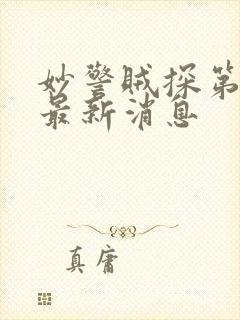 妙警贼探第
最新消息
真庸